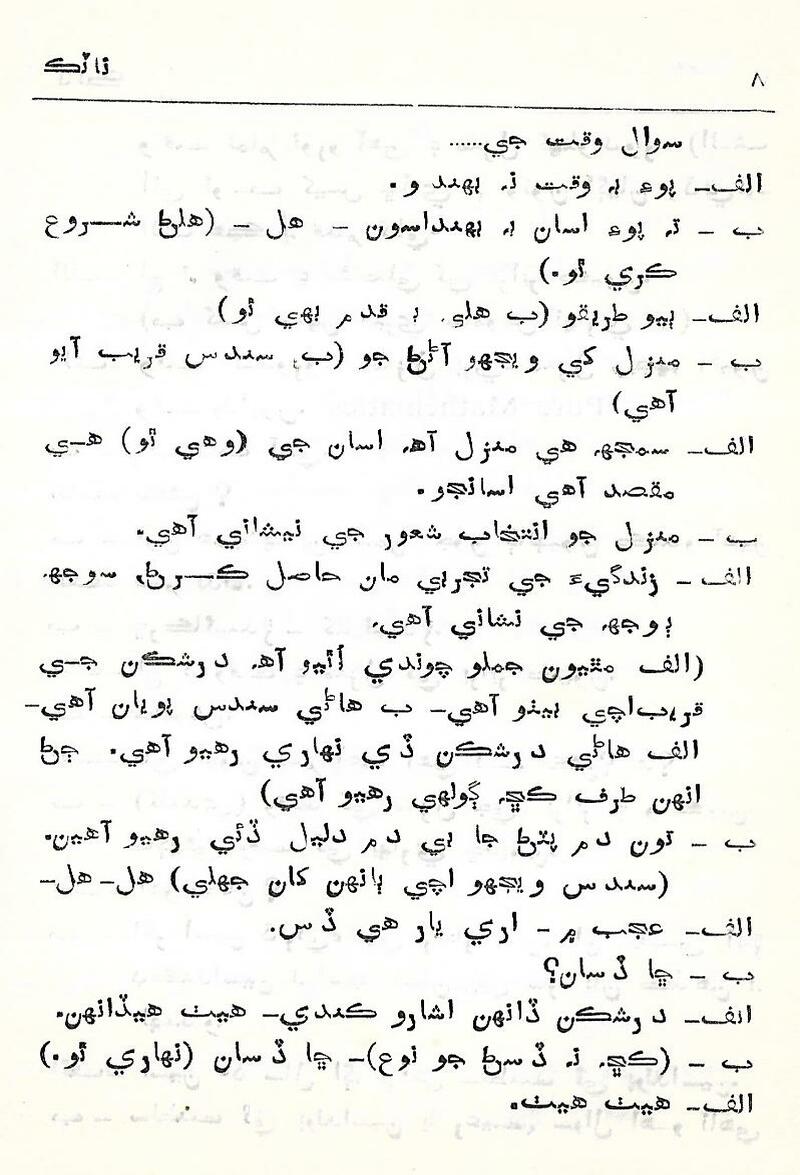 ناٽڪ
۸
سوال وقت جي......
الف- پوءِ بہ وقت نہ بهندو.
ب - تہ پوءِ اسان بہ بهنداسون - هل - (هلڻ شروع
ڪري ٿو.)
الف- ٻيو طريقو (ب هلي، ٻہ قدم بهي ٿو)
ب - منزل کي ويجهو آڻڻ جو (ب، سندس قريب آيو
آهي)
الف- سمجهہ هي منزل آهہ اسان جي (وهي ٿو) هي
مقصد آهي اسانجو.
ب - منزل جو انتخاب شعور جي نيشاني آهي.
الف - زندگيءَ جي تجربي مان حاصل ڪرڻ، سوجهہ
ٻوجهہ جي نشاني آهي.
(الف مٿيون جملو چوندي اُٿيو آهہ درشڪن جي
قريب اچي بيٺو آهي- ب هاڻي سندس پويان آهي-
الف هاڻي درشڪن ڏي نهاري رهيو آهي. ڄڻ
انهن طرف ڪڇہ ڳولهي رهيو آهي)
ب - تون دم پٽڻ جا بي دم دليل ڏئي رهيو آهين.
(سندس ويجهو اچي ٻانهن کان جهلي) هل- هل-
الف- عجب ۾ - اري يار هي ڏس.
ب - ڇا ڏسان؟
الف- درشڪن ڏانهن اشارو ڪندي- هيٺ هيڏانهن.
ب - (ڪڇہ نہ ڏسڻ جو نوع)- ڇا ڏسان (نهاري ٿو.)
الف- هيٺ هيٺ.